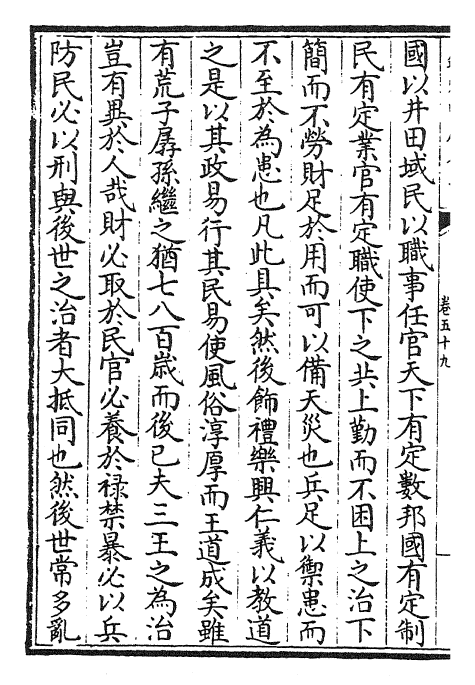 卷五十九
國以井田域民以職事任官天下有定數邦國有定制
民有定業官有定職使下之共上勤而不困上之治下
簡而不勞財足於用而可以備天災也兵足以禦患而
不至於為患也凡此具矣然後飾禮樂興仁義以教道
之是以其政易行其民易使風俗淳厚而王道成矣雖
有荒子孱孫繼之猶七八百歲而後已夫三王之為治
豈有異於人哉財必取於民官必養於祿禁暴必以兵
防民必以刑與後世之治者大抵同也然後世常多亂